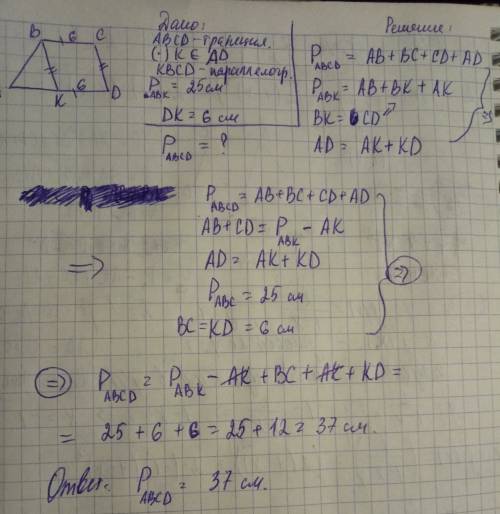 B 6 C
K 6 D
Дано:
ABCD - трапеция.
(·) K ∈ AD
KBCD - параллелогр.
P_ABK = 25 см
DK = 6 см
P_ABCD = ?
Решение:
P_ABCD = AB + BC + CD + AD
P_ABK = AB + BK + AK
BK = CD
AD = AK + KD
⇒
P_ABCD = AB + BC + CD + AD
AB + CD = P_ABK - AK
⇒ AD = AK + KD ⇒
P_ABC = 25 см
BC = KD = 6 см
⇒ P_ABCD = P_ABK - AK + BC + AK + KD =
= 25 + 6 + 6 = 25 + 12 = 37 см.
Ответ: P_ABCD = 37 см.